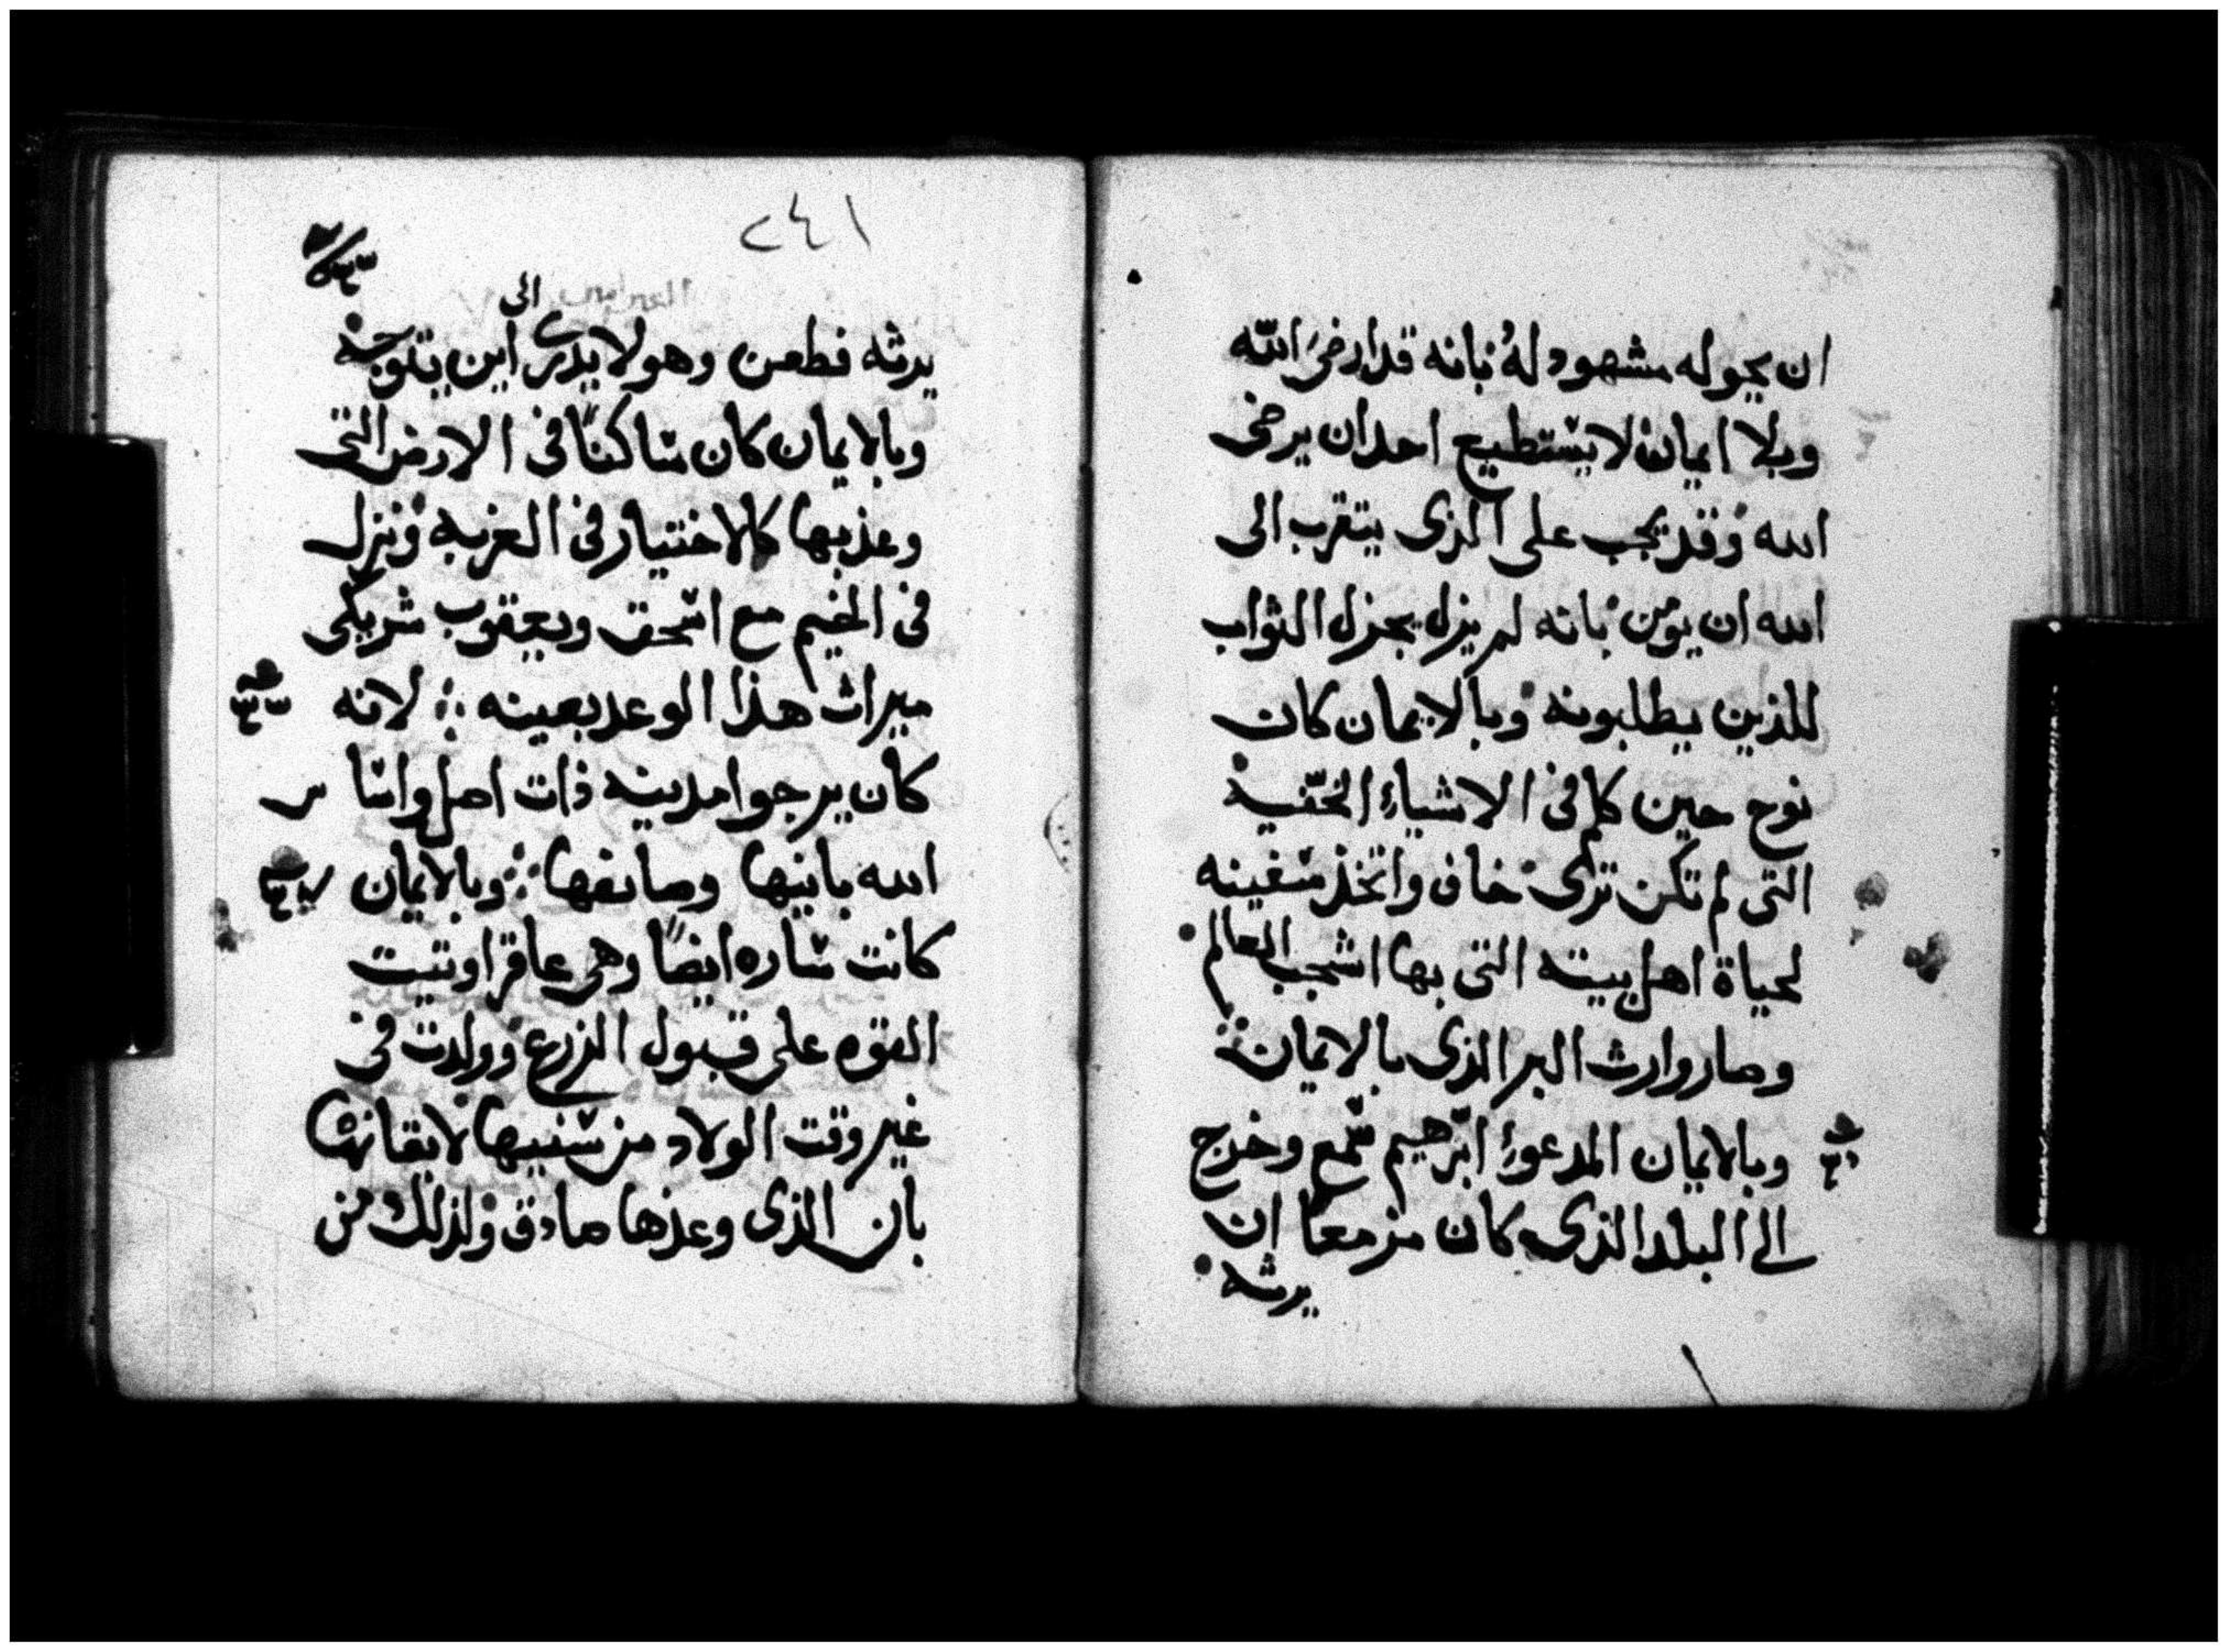 ان يحوله مشهود له بانه قد ارضى الله
وبلا ايمان لا يستطيع احد ان يرضى
الله وقد يجب على الذى يتقرب الى
الله ان يومن بانه لم يزل يجزل الثواب
للذين يطلبونه وبالايمان كان
نوح حين كلم فى الاشياء الخفيه
التى لم تكن ترى خاف واتخذ سفينه
لحياة اهل بيته التى بها اشجب العالم
وصار وارث البر الذى بالايمان
وبالايمان المدعوا ابرهيم سمع وخرج
الى البلد الذى كان مزمعا ان
يرثه
٢٤١
الى
يرثه فطعن وهو لا يدرى اين يتوجه
وبالايمان كان ساكنا فى الارض التى
وعد بها كالاختيار فى الغربه ونزل
فى الخيم مع اسحق ويعقوب شريكى
ميراث هذا الوعد بعينه لانه
كان يرجوا مدينه ذات اصل واساس
الله بانيها وصانعها وبالايمان
كانت ساره ايضا وهى عاقر اوتيت
القوه على قبول الزرع وولدت فى
غير وقت الولاد من سنيها لايقانها
بان الذى وعدها صادق ولذلك من